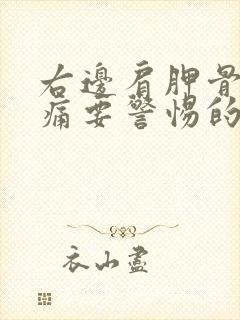 右邊肩胛骨
痛要警惕的
衣山盡